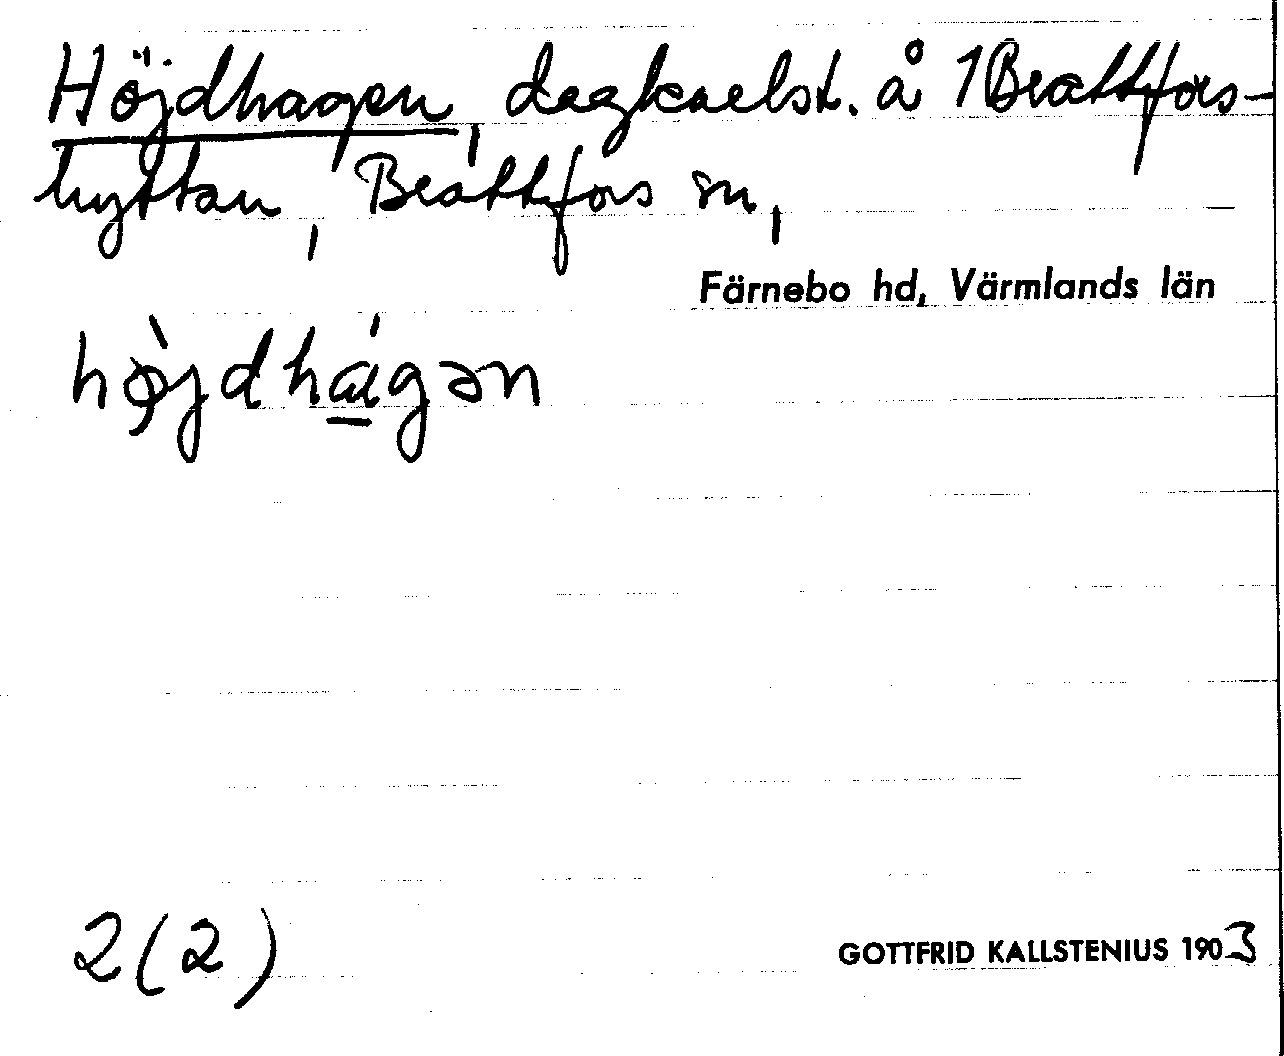 Höjdhagen, dagkarlst. å 1 Brattfors-
hyttan, Brattfors sn,
Färnebo hd, Värmlands län
hø̀jdhágən
2 (2)
GOTTFRID KALLSTENIUS 1903